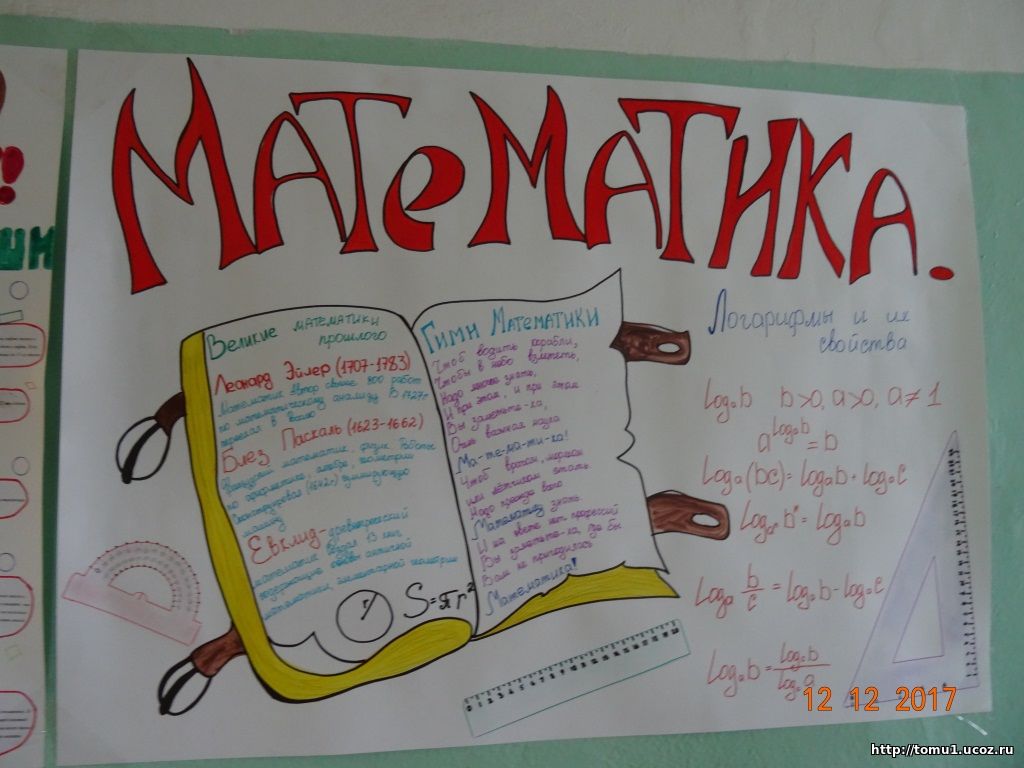 МАТеМАТИКА.
Великие математики
прошлого
Леонард Эйлер (1707-1783)
Математик. Автор свыше 800 работ
по математическому анализу. В 1727г.
приехал в
Блез Паскаль (1623-1662)
французский математик, физик. Работы
по арифметике, алгебре, геометрии
Сконструировал (1642г) суммирующую
машину
Евклид - древнегреческий
математик. 13 книг
содержащую основы античной
математики, элементарной геометрии
r S=πr²
Гимн Математики
Чтоб водить корабли,
Чтобы в небо взлететь,
Надо многое знать,
И при этом, и при этом
Вы заметьте-ка,
Очень важная наука
Ма-те-ма-ти-ка!
Чтоб врачом, моряком
или лётчиком стать
Надо прежде всего
Математику знать.
И на свете нет профессий
Вы заметьте-ка, где бы
Вам не пригодилась
Математика!
0 1 2 3 4 5 6 7 8 9 10 11 12 13 14 15 16 17 18 19 20
Логарифмы и их
свойства
logₐb b>0, a>0, a≠1
a^logₐb = b
logₐ(bc)=logₐb+logₐc
logₐⁿ bⁿ = logₐb
logₐ b/c = logₐb-logₐc
12 12 2017
http://tomu1.ucoz.ru